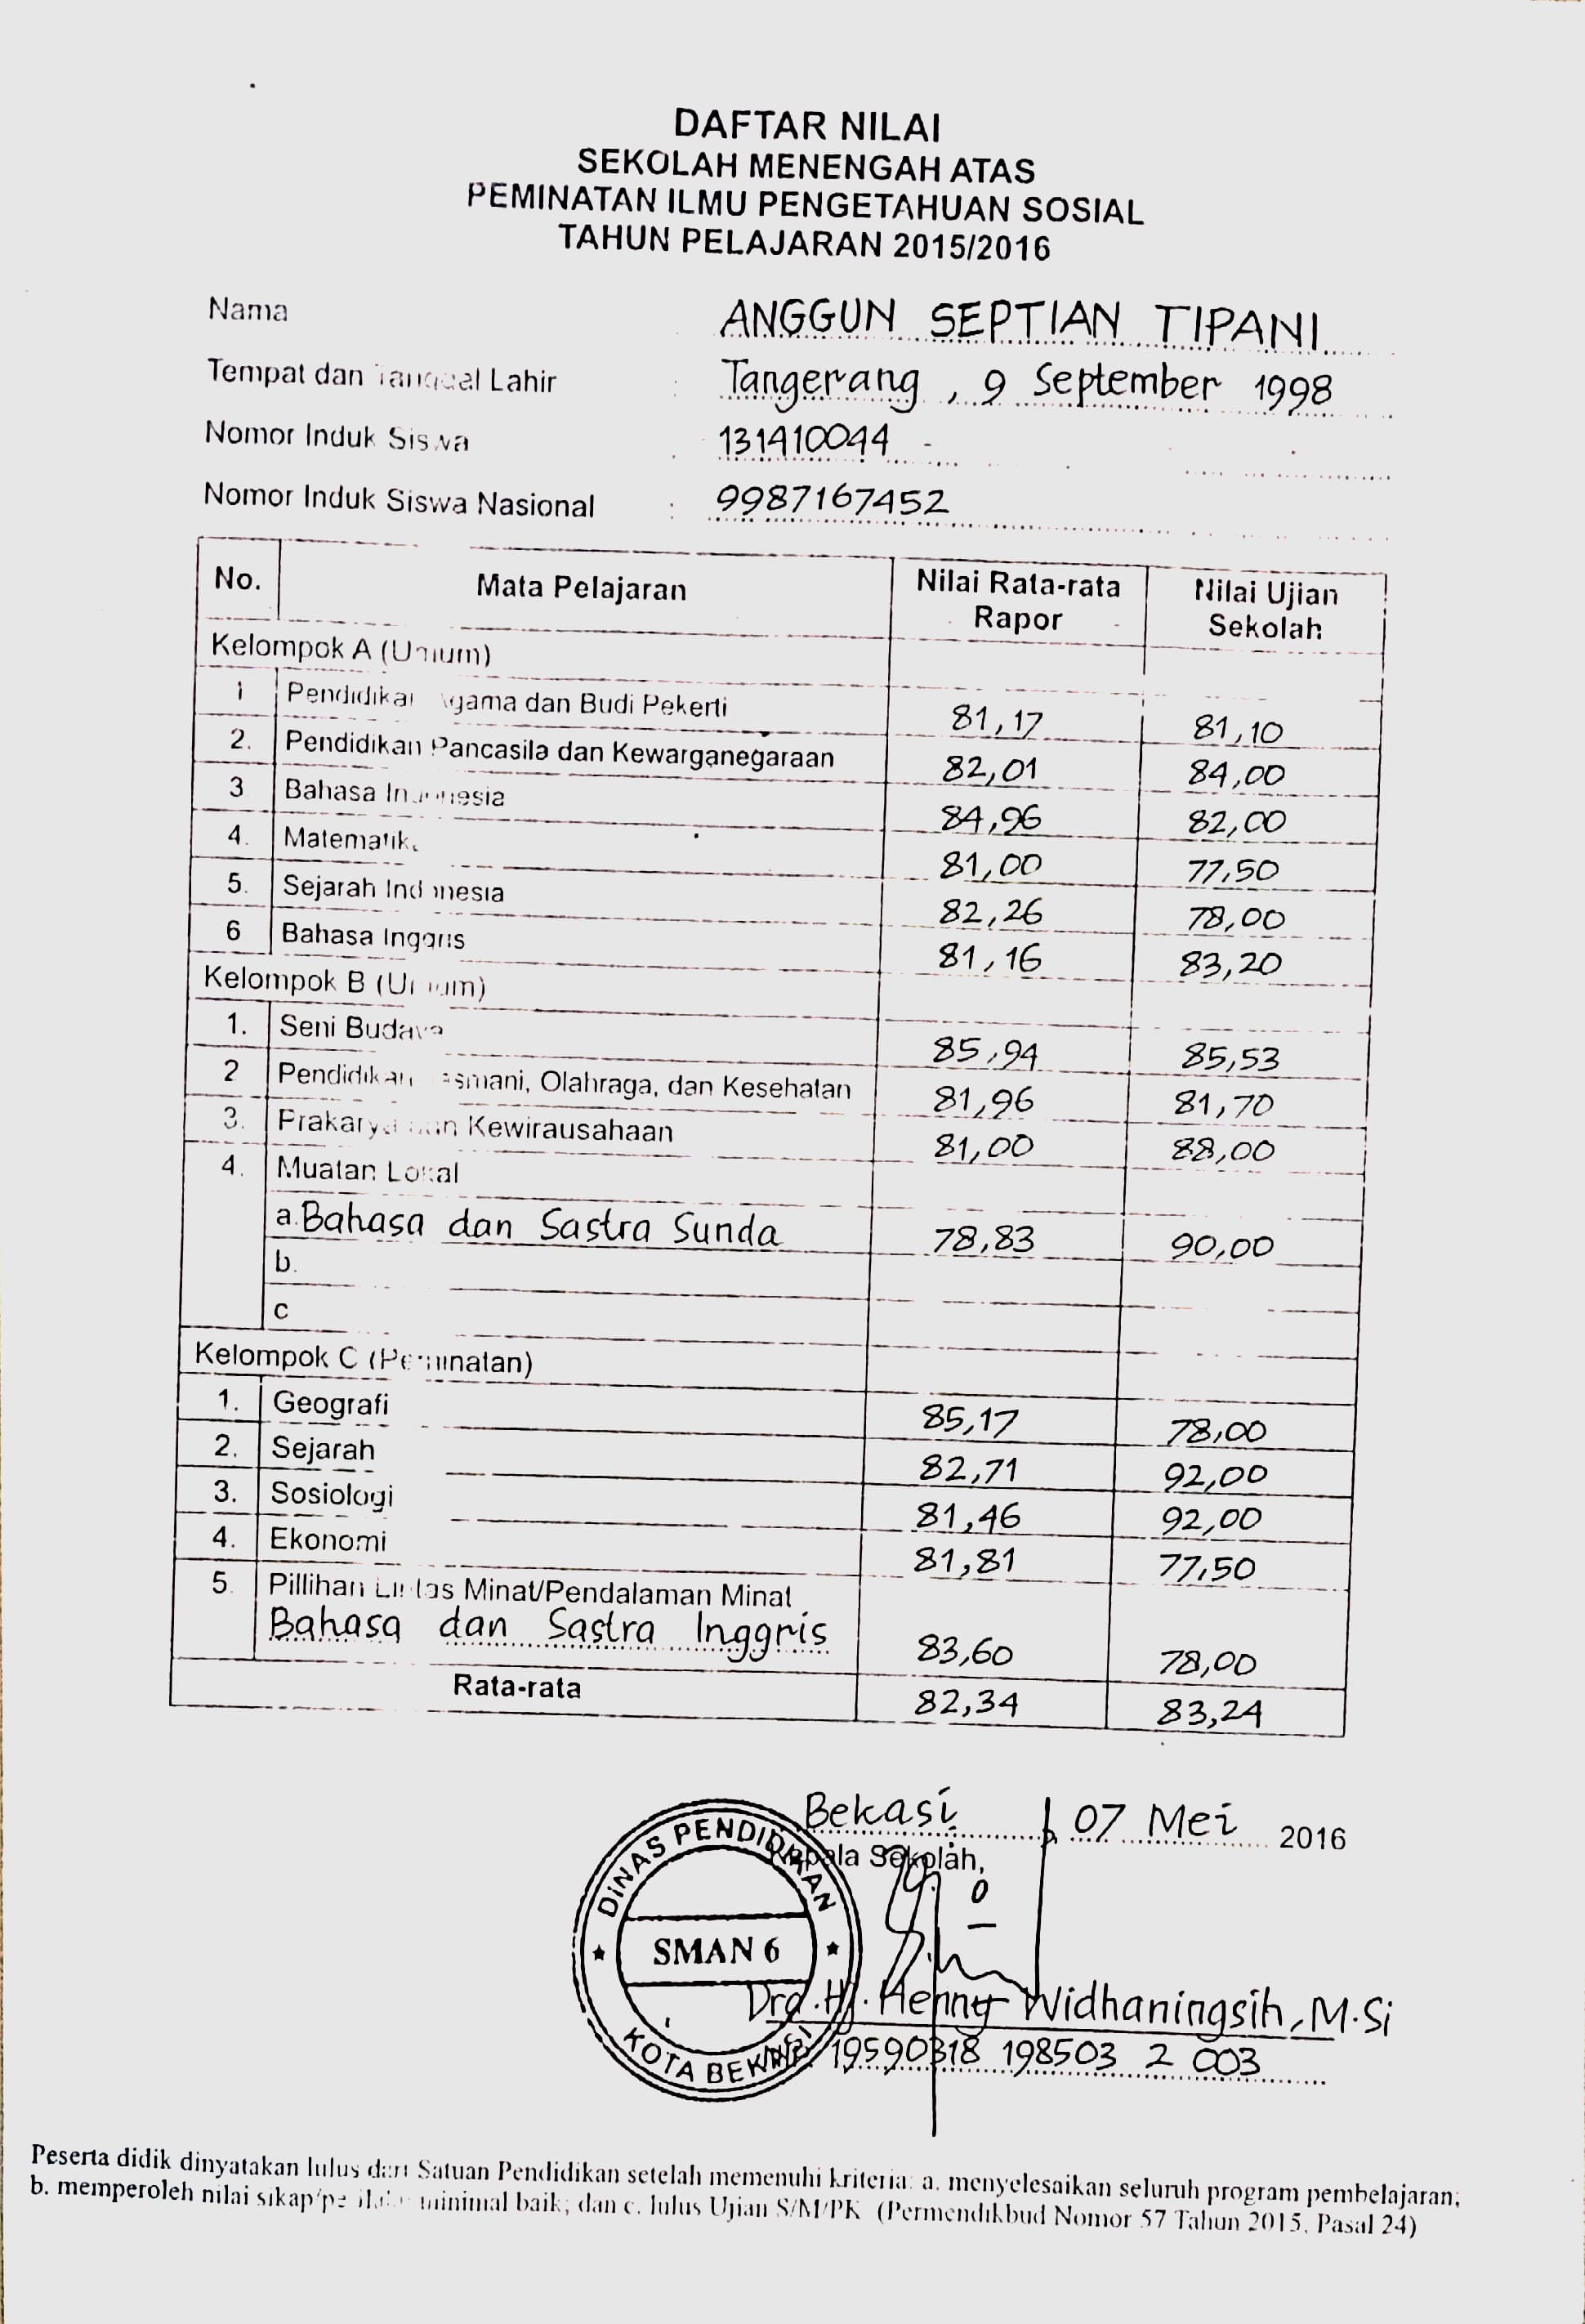 DAFTAR NILAI
SEKOLAH MENENGAH ATAS
PEMINATAN ILMU PENGETAHUAN SOSIAL
TAHUN PELAJARAN 2015/2016
Nama ANGGUN SEPTIAN TIPANI
Tempat dan Tanggal Lahir : Tangerang, 9 September 1998
Nomor Induk Siswa : 131410044 -
Nomor Induk Siswa Nasional : 9987167452
No. Mata Pelajaran Nilai Rata-rata Rapor Nilai Ujian Sekolah
Kelompok A (Umum)
1 Pendidikan Agama dan Budi Pekerti 81,17 81,10
2. Pendidikan Pancasila dan Kewarganegaraan 82,01 84,00
3 Bahasa Indonesia 84,96 82,00
4. Matematika 81,00 77,50
5. Sejarah Indonesia 82,26 78,00
6 Bahasa Inggris 81,16 83,20
Kelompok B (Umum)
1. Seni Budaya 85,94 85,53
2 Pendidikan Jasmani, Olahraga, dan Kesehatan 81,96 81,70
3. Prakarya dan Kewirausahaan 81,00 88,00
4. Muatan Lokal
a. Bahasa dan Sastra Sunda 78,83 90,00
b.
c
Kelompok C (Peminatan)
1. Geografi 85,17 78,00
2. Sejarah 82,71 92,00
3. Sosiologi 81,46 92,00
4. Ekonomi 81,81 77,50
5. Pillihan Lintas Minat/Pendalaman Minat
Bahasa dan Sastra Inggris 83,60 78,00
Rata-rata 82,34 83,24
Bekasi, 07 Mei 2016
Kepala Sekolah,
DINAS PENDIDIKAN
SMAN 6
KOTA BEKASI
Dra. Hj. Henny Widhaningsih, M.Si
NIP. 19590318 198503 2 003
Peserta didik dinyatakan lulus dari Satuan Pendidikan setelah memenuhi kriteria: a. menyelesaikan seluruh program pembelajaran;
b. memperoleh nilai sikap/perilaku minimal baik; dan c. lulus Ujian S/M/PK (Permendikbud Nomor 57 Tahun 2015, Pasal 24)